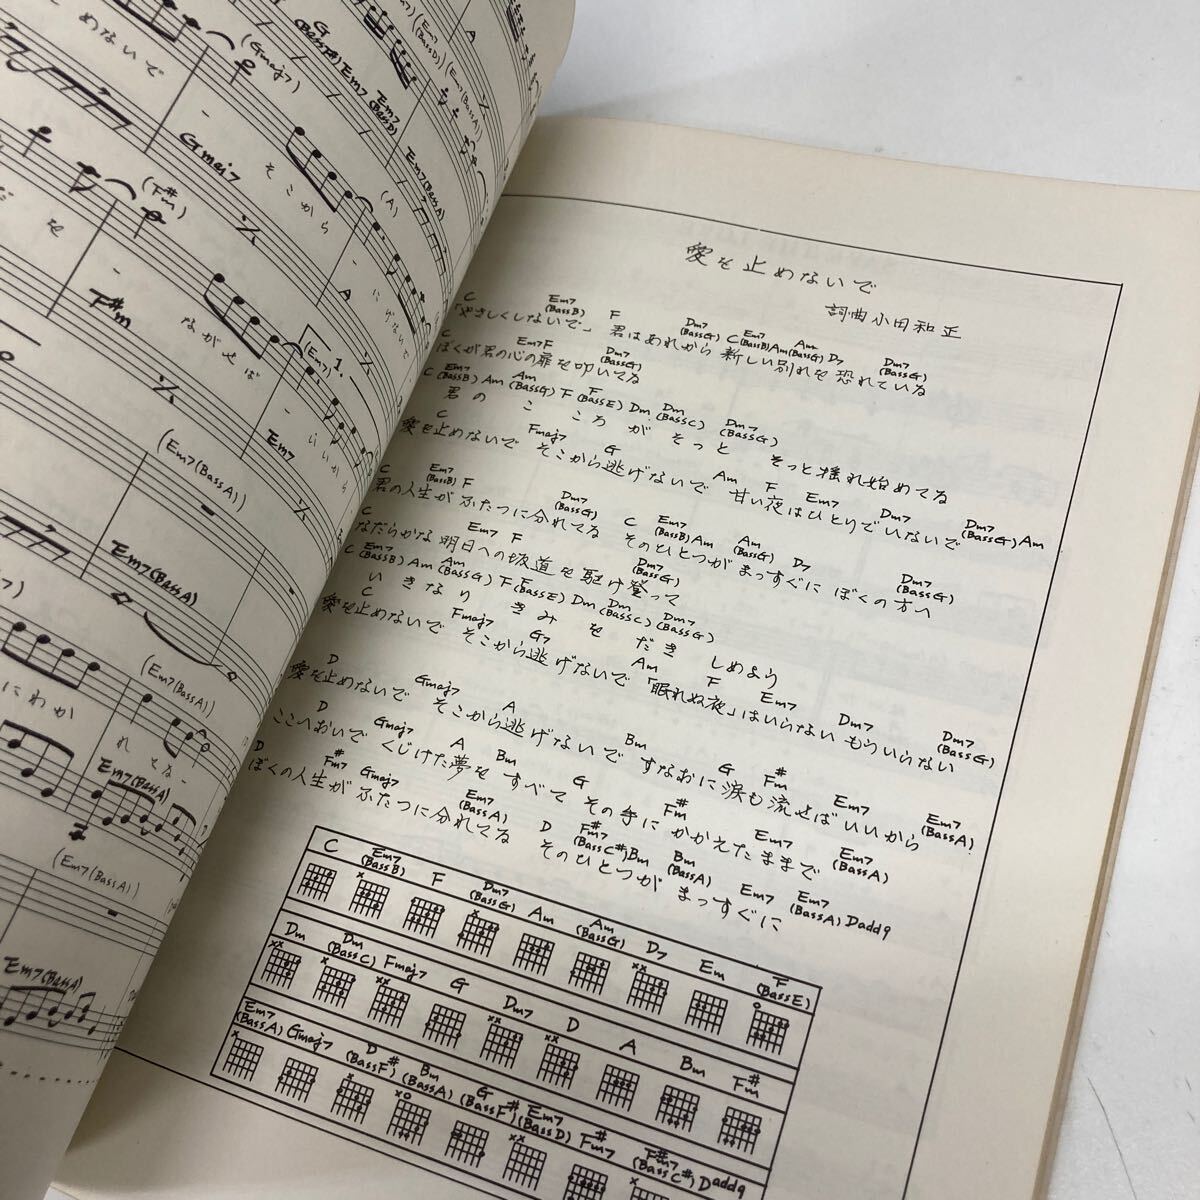 め ない で
(Gmaj7)
G
(Em7 (BassD))
(Em7(BassA))
A
Em7
Em7 (BassD)
Em7(BassA)
Gmaj7
そ こ か ら
(A)
に げ ない で
(F#m)
を
F#m
A
な が せ ば
(Em7)
1.
い い か ら
Em7
(Em7(BassA))
Em7(BassA)
に わ か
れ
(Em7(BassA))
Em7(BassA)
(Em7(BassA))
Em7(BassA)
愛を止めないで
詞曲 小田和正
C Em7(BassB) F Dm7(BassG) C Em7(BassB) Am Am(BassG) D7 Dm7(BassG)
「やさしくしないで」 君はあれから 新しい別れを 恐れている
C Em7 F Dm7(BassG)
ぼくが君の心の扉を叩いてる
C Em7(BassB) Am Am(BassG) F F(BassE) Dm Dm(BassC) Dm7(BassG)
君の こ こ ろ が そっと そっと 揺れ始めてる
C Fmaj7 G Am F Em7 Dm7 Dm7(BassG) Am
愛を止めないで そこから逃げないで 甘い夜はひとりでいないで
C Em7(BassB) F Dm7(BassG) C Em7(BassB) Am Am(BassG) D7 Dm7(BassG)
君の人生が ふたつに分れてる そのひとつが まっすぐに ぼくの方へ
C Em7 F Dm7(BassG)
なだらかな 明日への坂道を 駆け登って
C Em7(BassB) Am Am(BassG) F F(BassE) Dm Dm(BassC) Dm7(BassG)
い き な り き み を だ き しめよう
C Fmaj7 G7 Am F Em7 Dm7 Dm7(BassG)
愛を止めないで そこから逃げないで 「眠れぬ夜」はいらない もういらない
D Gmaj7 A Bm G F#m Em7 Em7(BassA)
愛を止めないで そこから逃げないで すなおに涙も流せばいいから
D Gmaj7 A Bm G F#m Em7 Em7(BassA)
ここへおいで くじけた夢を すべて その手に かかえたままで
D F#m7 Gmaj7 Em7(BassA) D F#m7(BassC#) Bm Bm(BassA) Em7 Em7(BassA) Dadd9
ぼくの人生が ふたつに分れてる そのひとつが まっすぐに
C Em7(BassB) F Dm7(BassG) Am Am(BassG) D7 Em F(BassE)
Dm Dm(BassC) Fmaj7 G Dm7 D A Bm F#m
Em7(BassA) Gmaj7 D(BassF#) Bm(BassA) G(BassF#) Em7(BassD) F#m7 F#m7(BassC#) Dadd9